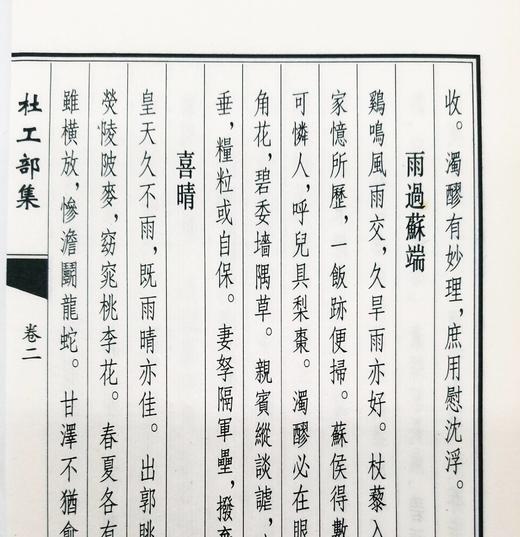 收。濁醪有妙理，庶用慰沈浮。
雨過蘇端
鷄鳴風雨交，久旱雨亦好。杖藜入
家憶所歷，一飯跡便掃。蘇侯得數
可憐人，呼兒具梨棗。濁醪必在眼
角花，碧委墻隅草。親賓縱談謔，
垂，糧粒或自保。妻孥隔軍壘，撥棄
喜晴
皇天久不雨，既雨晴亦佳。出郭眺
熒㥄陂麥，窈窕桃李花。春夏各有
雖橫放，慘澹鬭龍蛇。甘澤不猶愈
杜工部集
卷二